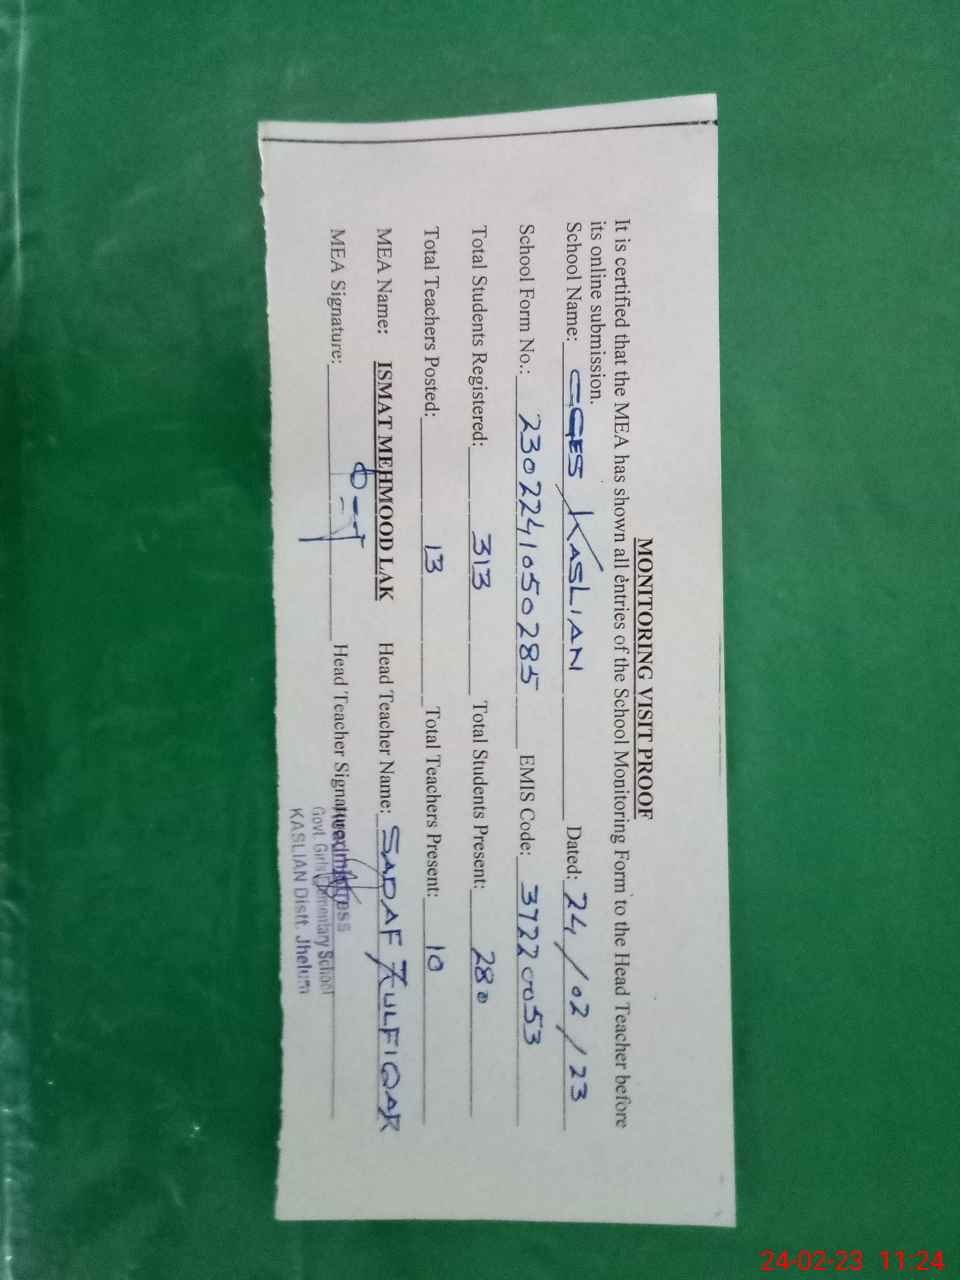 MONITORING VISIT PROOF
It is certified that the MEA has shown all entries of the School Monitoring Form to the Head Teacher before
its online submission.
School Name: GGES KASLIAN Dated: 24/02/23
School Form No.: 2302241050285 EMIS Code: 37220053
Total Students Registered: 313 Total Students Present: 280
Total Teachers Posted: 13 Total Teachers Present: 10
MEA Name: ISMAT MEHMOOD LAK Head Teacher Name: SADAF ZULFIQAR
MEA Signature: Head Teacher Signature:
Headmistress
Govt. Girls Elementary School
KASLIAN Distt. Jhelum
24-02-23 11:24